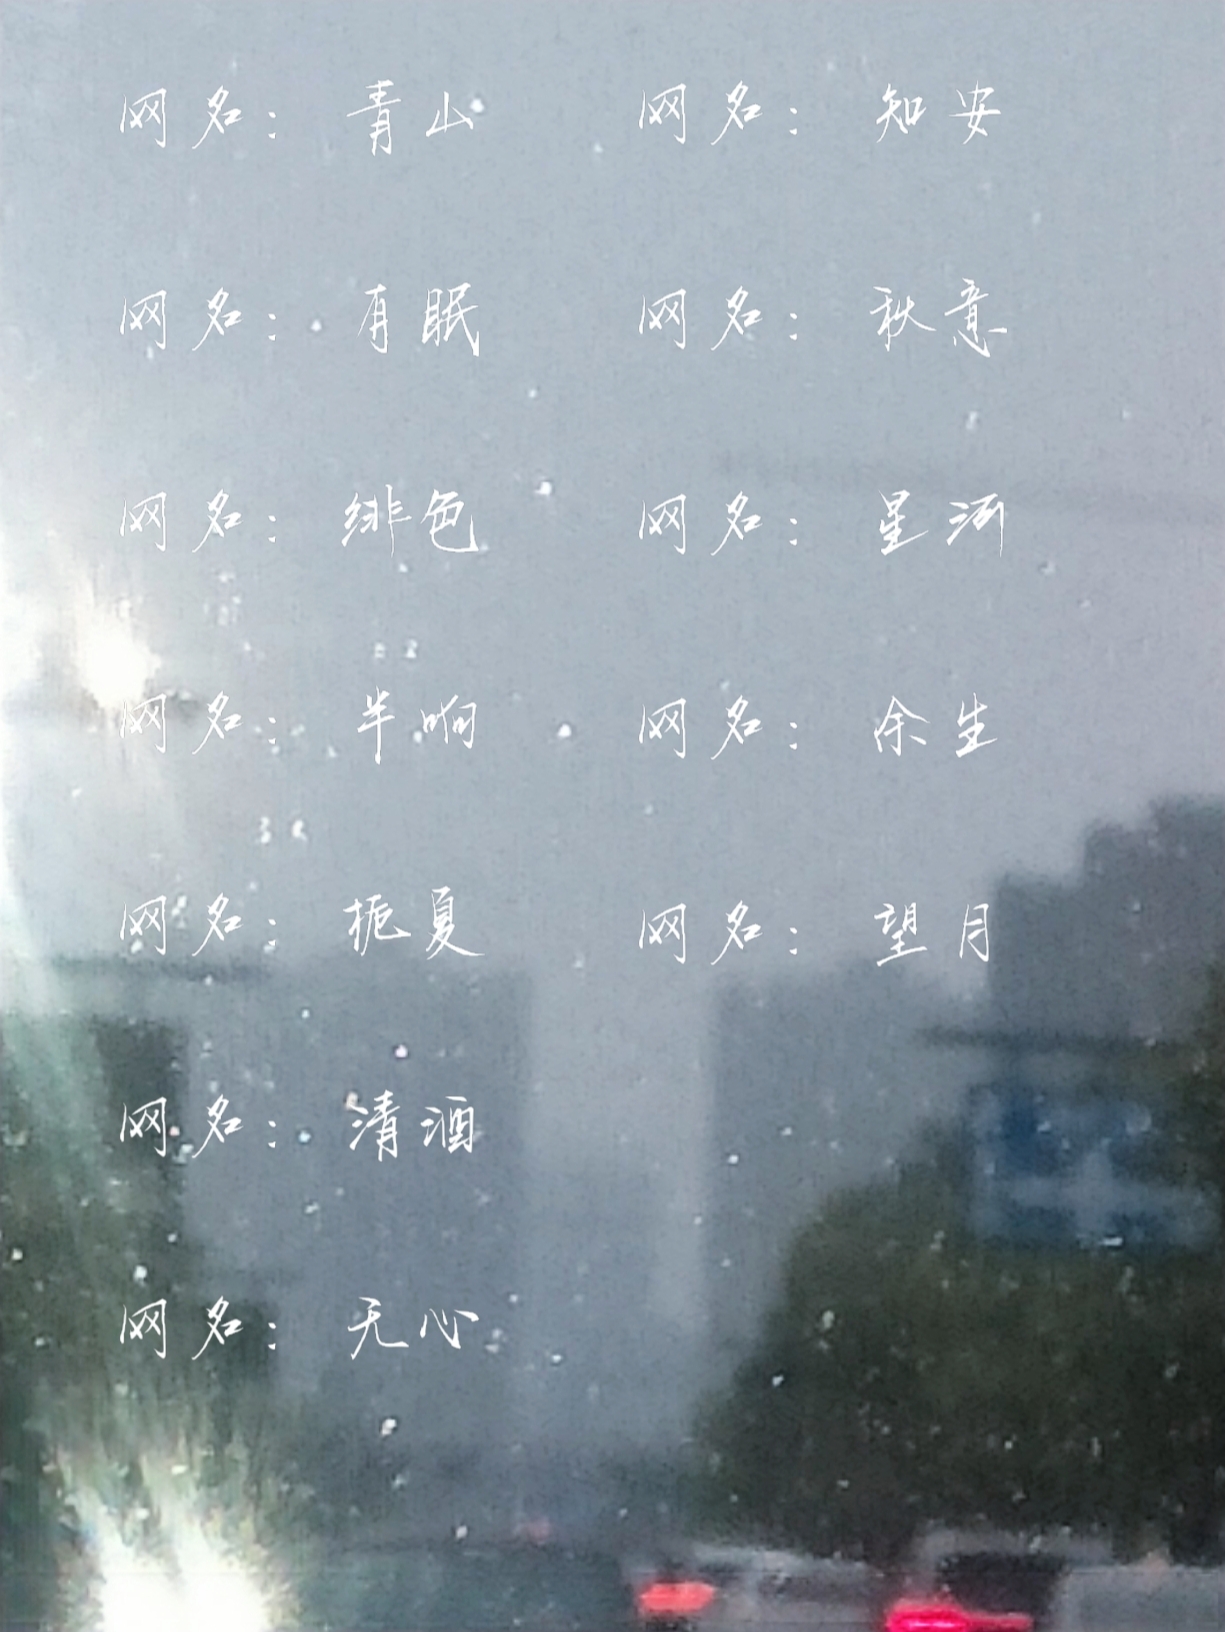 网名：青山 网名：知安
网名：有眠 网名：秋意
网名：绯色 网名：星河
网名：半响 网名：余生
网名：栀夏 网名：望月
网名：清酒
网名：无心